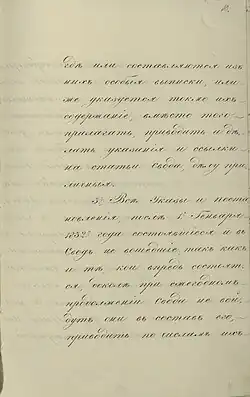 гдѣ или составляются изъ
нихъ особыя выписки, или
же указуется токмо ихъ
содержаніе, вмѣсто того
прилагать, приводить и дѣ
лать указанія и ссылки
на статьи Свода, дѣлу при
личныя.
3е Всѣ Указы и поста
новленія, послѣ 1го Генваря
1832го года состоявшіеся и въ
Сводъ не вошедшіе, такъ какъ
и тѣ кои впредь состоят
ся, доколѣ при ежегодномъ
продолженіи Свода не вой
дутъ они въ составъ его,
приводить по числамъ ихъ